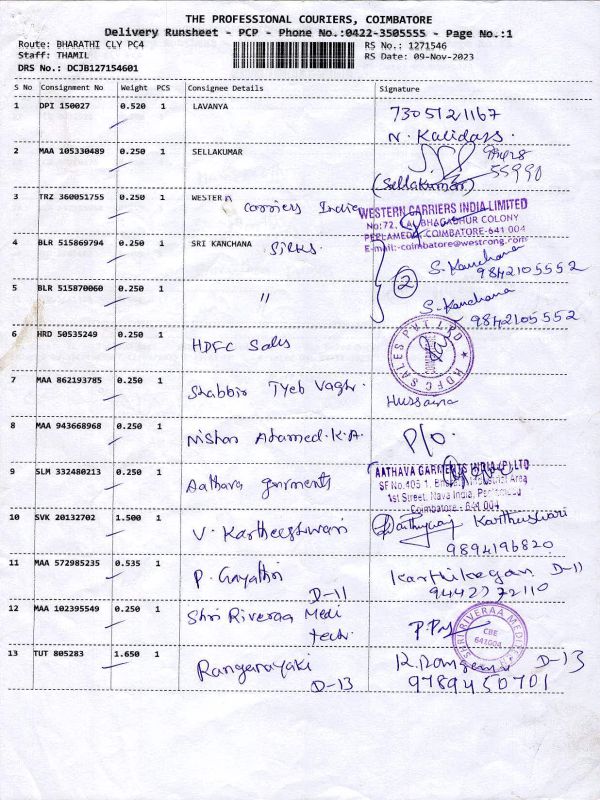 THE PROFESSIONAL COURIERS, COIMBATORE
Delivery Runsheet - PCP - Phone No.:0422-3505555 - Page No.:1
Route: BHARATHI CLY PC4
RS No.: 1271546
Staff: THAMIL
RS Date: 09-Nov-2023
DRS No.: DCJB127154601
S No Consignment No Weight PCS Consignee Details Signature
1 DPI 150027 0.520 1 LAVANYA 7305121167
N. Kalidass.
2 MAA 105330489 0.250 1 SELLAKUMAR
55990
(Sellakumar)
3 TRZ 360051755 0.250 1 WESTERN carriers India
WESTERN CARRIERS INDIA LIMITED
No:72, BHAGADHUR COLONY
PEELAMEDU, COIMBATORE-641 004
E-mail:-coimbatore@westrong.com
4 BLR 515869794 0.250 1 SRI KANCHANA silks.
S. Kanchana
9842105552
2
5 BLR 515870060 0.250 1 "
S. Kanchana
9842105552
6 HRD 50535249 0.250 1 HDFC Sales
HDFC SALES PVT. LTD
7 MAA 862193785 0.250 1 Shabbir Tyeb Vagh.
Hussaina
8 MAA 943668968 0.250 1 Nishar Ahamed.K.A. P/O.
9 SLM 332480213 0.250 1 Aathava garments
AATHAVA GARMENTS INDIA (P) LTD
SF No.405 1, Industrial Area
1st Street, Nava India,
Coimbatore - 641 004
10 SVK 20132702 1.500 1 V. Kartheeshwari Karthishwari
9894196820
11 MAA 572985235 0.535 1 P. Gayathri
D-11
Karthikeyan, D-11
9442772110
12 MAA 102395549 0.250 1 Shri Riveraa Medi
tech.
SHRI RIVERAA MEDI
CBE
641004
13 TUT 805283 1.650 1 Ranganayaki
D-13
D-13
9789450701